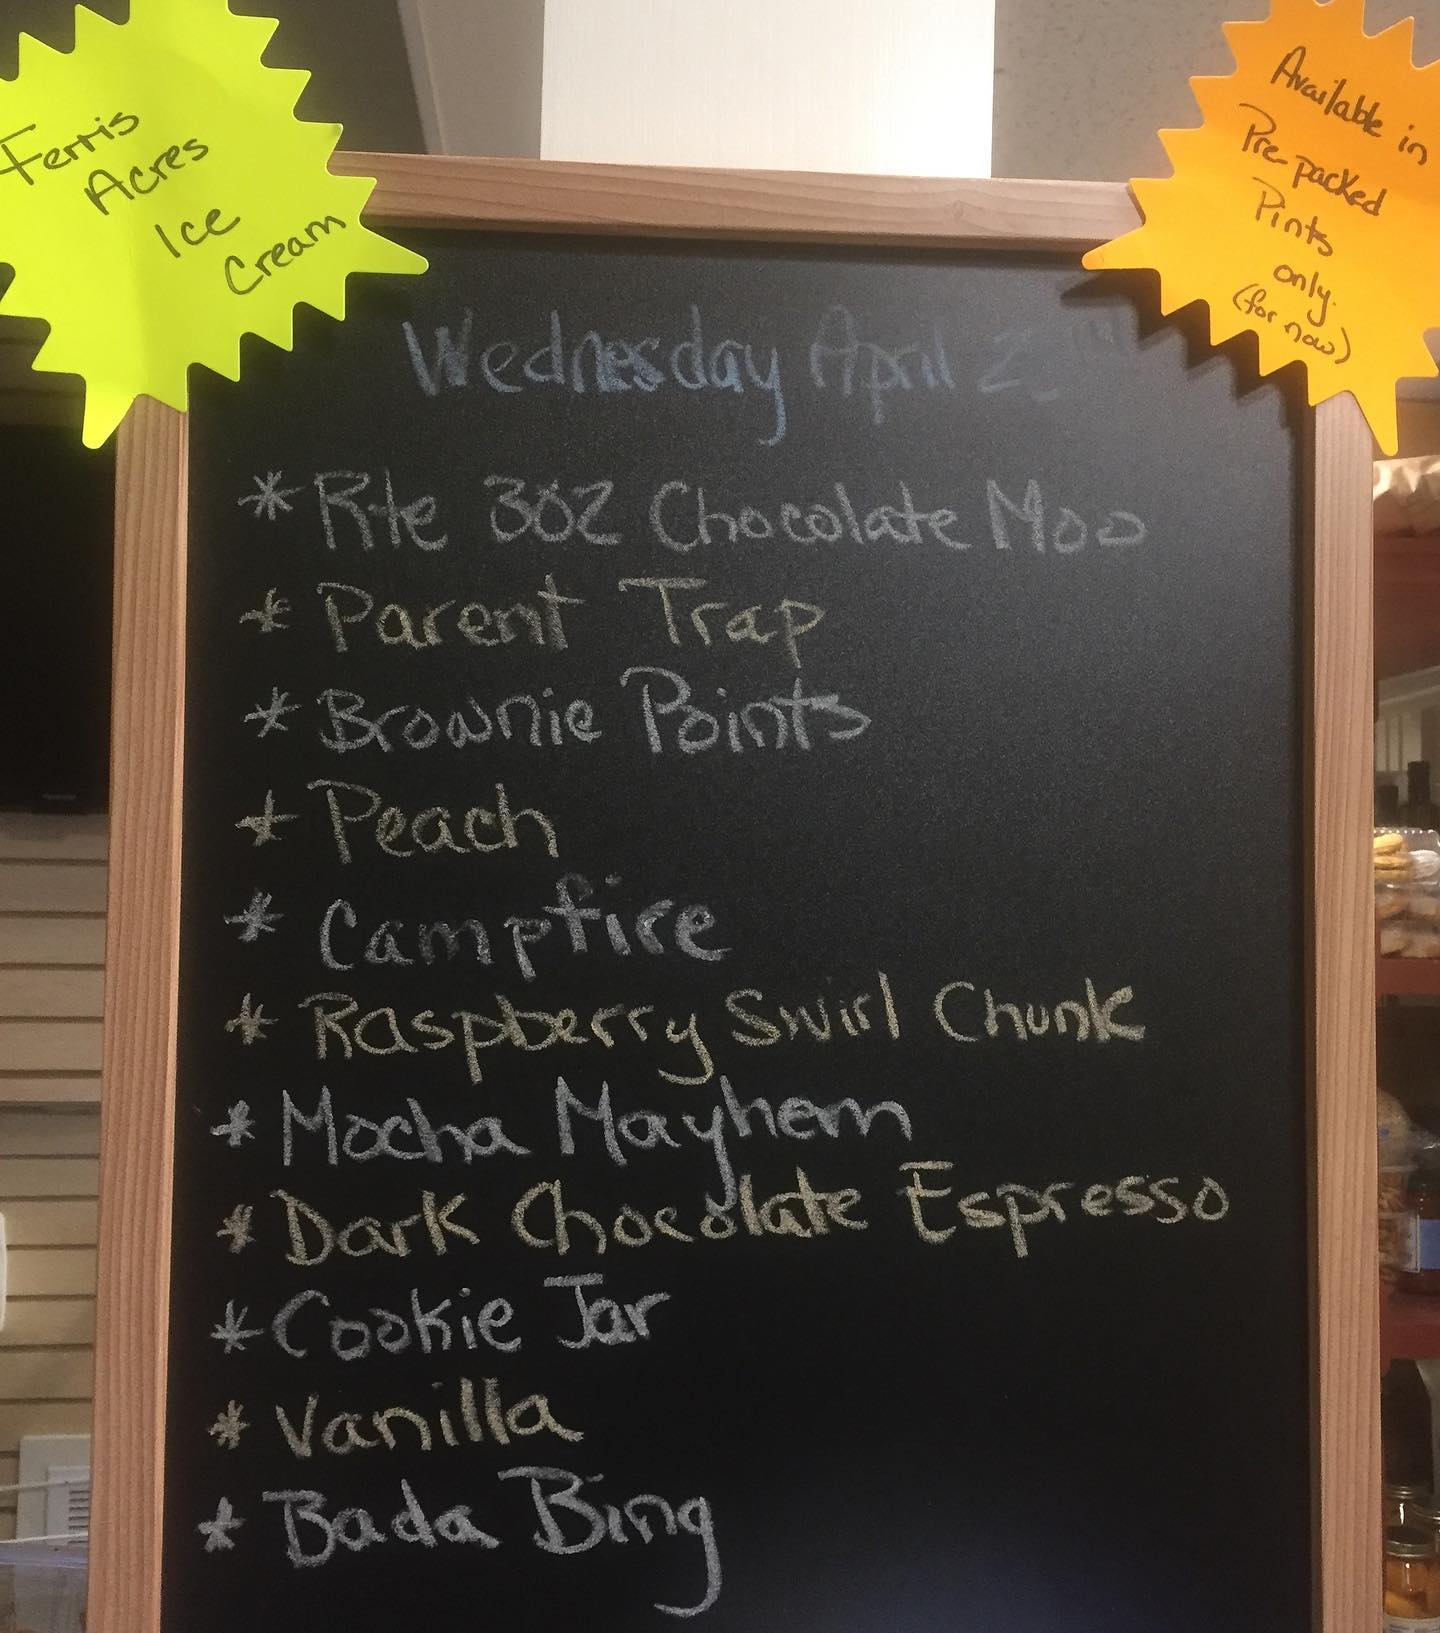 Ferris
Acres
Ice
Cream
Available in
Pre packed
Pints
only.
(for now)
Wednesday April
* Rte 302 Chocolate Moo
* Parent Trap
* Brownie Points
* Peach
* Campfire
* Raspberry Swirl Chunk
* Mocha Mayhem
* Dark Chocolate Espresso
* Cookie Jar
* Vanilla
* Bada Bing